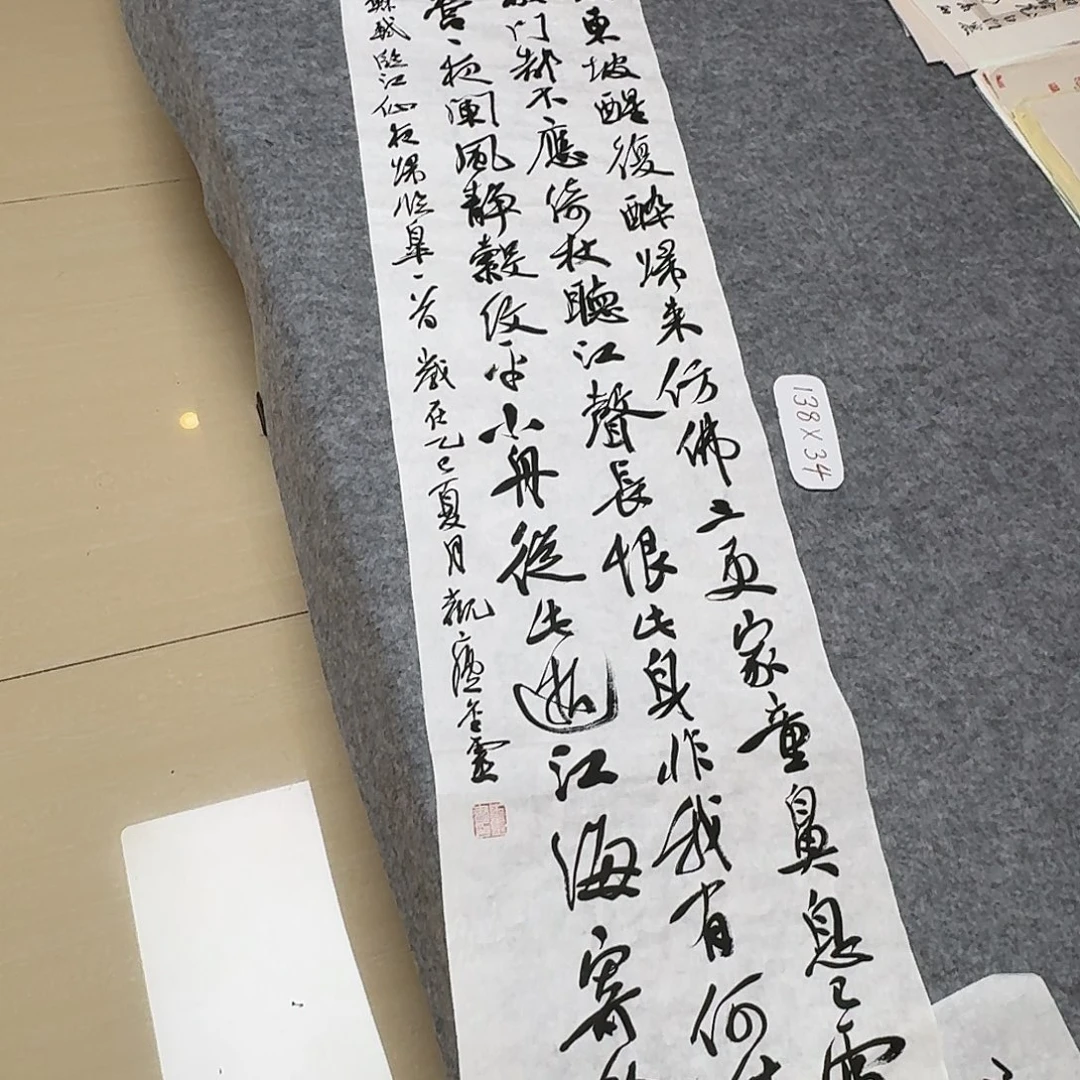 東坡醒復醉歸来仿佛三更家童鼻息已雷
敲門都不應倚杖聽江聲長恨此身非我有何
營々夜闌風靜縠紋平小舟從此逝江海寄
蘇軾臨江仙夜歸臨皐一首 歲在乙巳夏月
138×34